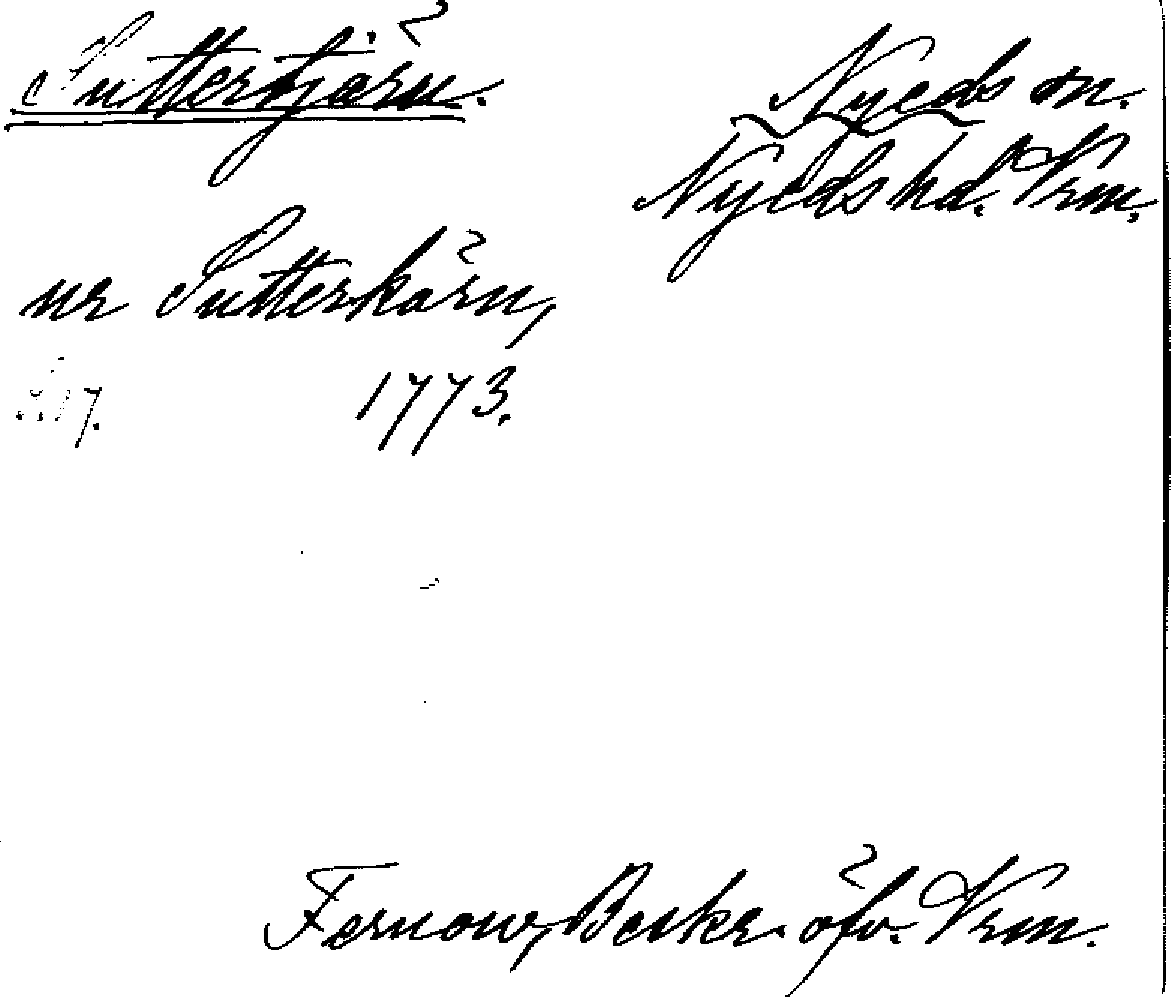 Suttertjärn.
Nyeds sn.
Nyeds hd. Vrm.
ur Sutterkärn,
1773.
Fernow, Beskr. öfv. Vrm.